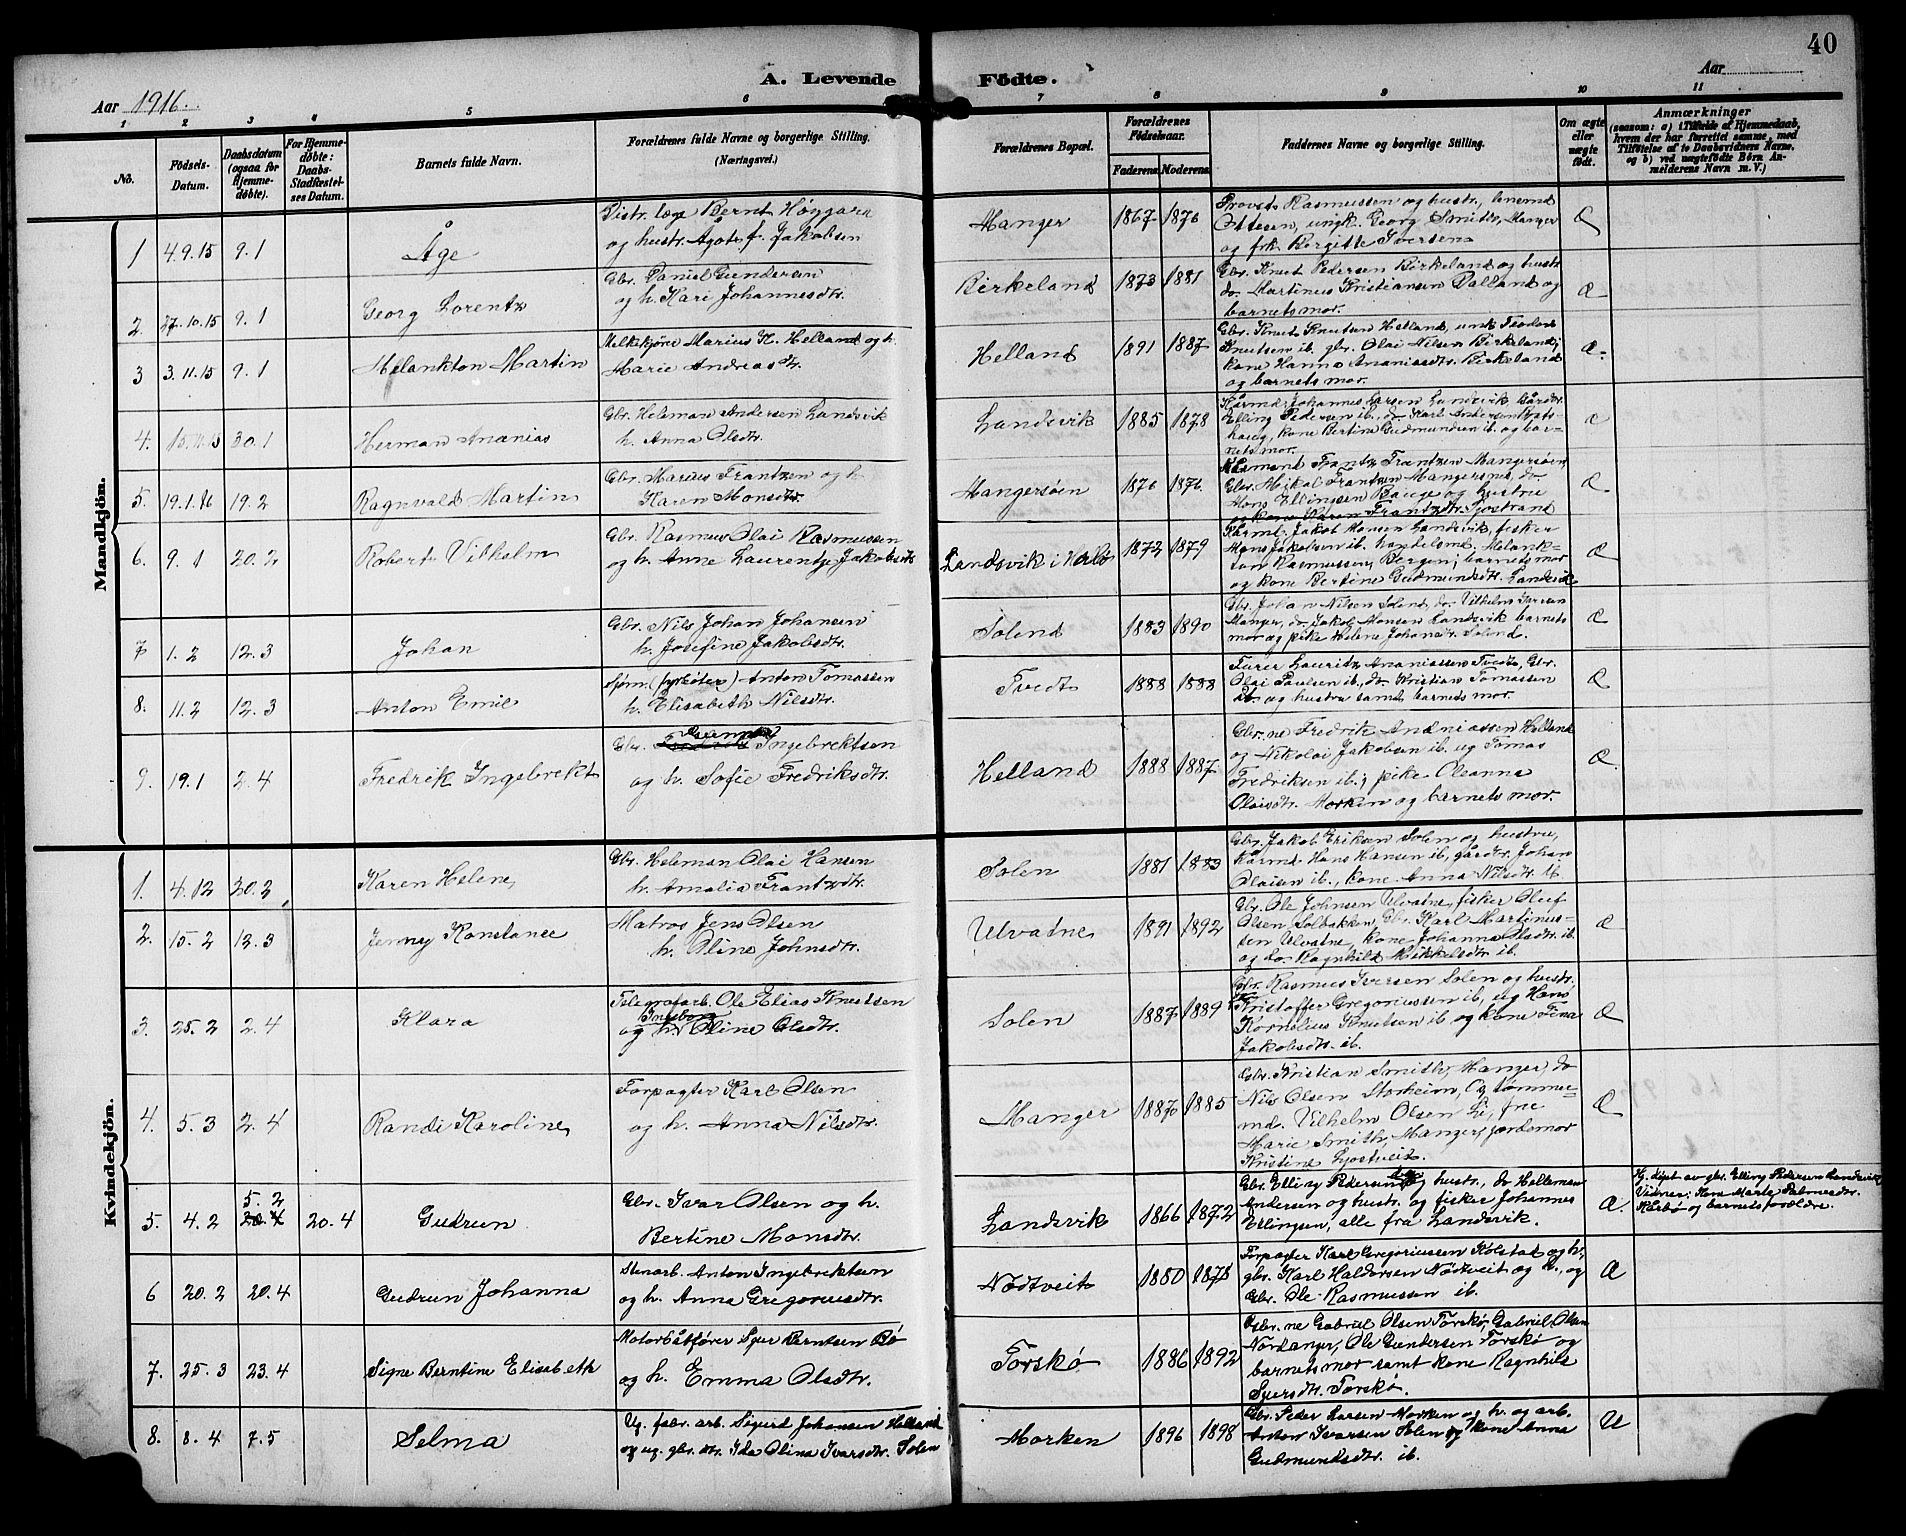 40
A. Levende Födte.
Aar 1916.
Aar
1 2 3 4 5 6 7 8 9 10 11
No.
Födsels-Datum.
Daabsdatum (ogsaa for Hjemme-døbte).
For Hjemme-døbte: Daabs-Stadfæstel-ses Datum.
Barnets fulde Navn.
Forældrenes fulde Navne og borgerlige Stilling. (Næringsvei.)
Forældrenes Bopæl.
Forældrenes Födselsaar.
Faderens Moderens
Faddernes Navne og borgerlige Stilling.
Om ægte eller uægte födt.
Anmærkninger
(saasom: a) i Tilfælde af Hjemmedaab, hvem der har forrettet samme, med Tilföielse af to Daabsvidners Navne, og b) ved uægtefödte Börn An-melderens Navn m. V.)
Mandkjön.
1 4.9.15 9.1 Åge
Distr. læge Bernt Høygara
og hustr. Agote f. Jakobsen
Manger 1867 1876
Provst Rasmussen og hustr., lærerind
Ottesen, ungk. Georg Smith, Manger
og frk. Bergitte Iversen
Æ
2. 27.10.15 9.1 Georg Lorentz
Gbr. Daniel Gundersen
og h. Kari Johannesdtr.
Birkeland 1873 1881
Gbr. Knut Pedersen Birkeland og hustr.
do. Martinus Kristiansen Dalland og
barnets mor.
Æ
3 3.11.15 9.1 Melankton Martin
Melkekjöre Marius K. Helland og h.
Marie Andreasdtr.
Helland 1891 1887
Gbr. Knut Knutsen Helland, unk. Teodor
Knutsen ib. gbr. Olai Nilsen Birkeland,
kone Hanna Ananiasdtr. Birkeland
og barnets mor.
Æ
4. 15.11.15 30.1 Herman Ananias
Gbr. Heleman Andersen Landsvik
h. Anna Olsdtr.
Landsvik 1885 1878
Kårmd. Johannes Larsen Landsvik, gårdbr.
Elling Pedersen ib., do. Karl Andersen
haug, kone Bertine Gudmundsen ib. og bar-
nets mor.
Æ
5. 19.1.16 19.2 Ragnvald Martin
Gbr. Marius Frantzen og h.
Karen Monsdtr.
Mangersöen 1876 1876.
Kårmand Frantz Frantzen Mangersöen,
Gbr. Mikal Frantzen Mangersnes, do.
Mons Ellingsen Bauge og hustru
og kone Karen Frantzdtr. Sjöstrand
Æ
6. 9.1 20.2 Robert Vilhelm
Gbr. Rasmus Olai Rasmussen
og h. Anne Laurentje Jakobsdtr.
Landsvik i Herlö 1872 1879
Kårmd. Jakob Monsen Landsvik, fisker
Mons Jakobsen ib. handelsmd. Melank-
ton Rasmussen, Bergen; barnets mor
og kone Bertine Gudmundsdtr. Landsvik
Æ
7 1.2 12.3 Johan
Gbr. Nils Johan Johansen
h. Josefine Jakobsdtr.
Solend 1883 1890
Gbr. Johan Nilsen Solend, do. Vilhelm Iversen
Manger, do. Jakob Monsen Landsvik barnets
mor og pike Helene Johansdtr. Solend.
Æ
8. 11.2 12.3 Anton Emil
Sjöm. (fyrböter) Anton Tomassen
h. Elisabeth Nilsdtr.
Tvedt 1888 1888
Furer Lauritz Ananiassen Tvedt, Gbr.
Olai Paulsen ib., do. Kristian Tomassen
ib. og hustru samt barnets mor.
Æ
9. 19.1 2.4 Fredrik Ingebrekt
Gbr. Ingebrektsen
og h. Sofie Fredriksdtr.
Helland 1888 1887
Gbr.ne Fredrik Ananiassen Helland
og Nikolai Jakobsen ib. ug. Tomas
Fredriksen ib.; pike Oleanna
Olaisdtr. Morken og barnets mor.
Æ
Kvindekjön.
1. 4.12 20.2 Karen Helene
Gbr. Heleman Olai Hansen
h. Amalia Frantzdtr.
Solen 1881 1883
Gbr. Jakob Eriksen Solen og hustru,
Kårmd. Hans Hansen ib., gårdbr. Johan
Olaisen ib., kone Anna Nilsdtr. ib.
2. 15.2 12.3 Jenny Konstance
Matros Jens Olsen
h. Oline Johnsdtr.
Ulvatne 1891 1892
Gbr. Ole Johnsen Ulvatne, fisker Oluf
Olsen Solbakken, Gbr. Karl Martinus-
sen Ulvatne, kone Johanna Olsdtr. ib.
og do. Ragnhild Mikkelsdtr. ib.
Æ
3. 25.2 2.4 Klara
Telegrafarb. Ole Elias Knutsen
Ingeborg
og h. Oline Olsdtr.
Solen 1887 1889
Gbr. Rasmus Iversen Solen og hustr.
Kristoffer Gregoriussen ib., ug. Hans
Kornelius Knutsen ib. og kone Tina
Jakobsdtr. ib.
Æ
4. 5.3 2.4 Randi Karoline
Forpagter Karl Olsen
og h. Anna Nilsdtr.
Manger 1887 1885
Gbr. Kristian Smith, Manger, do
Nils Olsen Storheim, Og tömmer-
md. Vilhelm Olsen Li, frue
Marie Smith, Manger, jordemor
Kristine Ljostveit.
Æ
5. 4.2 5.2 20.4 20.4 Gudrun
Gbr. Ivar Olsen og h.
Bertine Monsdtr.
Landsvik 1866 1872
Gbr. Elling Pedersen og hustr., do Helleman
Andersen og hustr. og fisker Johannes
Ellingsen, alle fra Landsvik.
Æ.
Hj. döpt av gbr. Elling Pedersen Landsvik
Vidner: Kone Marte Salmosdtr.
Kårbö og barnets forældre.
6 20.2 20.4 Gudrun Johanna
Stenarb. Anton Ingebrektsen
og h. Anna Gregoriusdtr.
Nödtveit 1880 1878
Forpagter Karl Gregoriussen Kolstad og h,
gbr. Karl Haldorsen Nödtveit og h., og
Gbr. Ole Rasmussen ib.
Æ
7. 25.3 23.4 Signe Berntine Elisabeth
Motorbåtförer Sjur Berntsen Bö
og h. Emma Olsdtr.
Toskö 1886 1892
Gbr.ne Gabriel Olsen Toskö, Gabriel Olsen
Nordanger, Ole Gundersen Toskö og
barnets mor samt kone Ragnhild
Sjursdtr. Toskö.
8. 8.4 7.5 Selma
Ug. fabr. arb. Sigurd Johansen Helland
og ug. gbr. dtr. Ida Olina Ivarsdtr. Solen
Morken 1896 1898
Gbr. Peder Larsen Morken og h. og arb.
Anton Ivarsen Solen og kone Anna
Gudmundsdtr. ib.
U